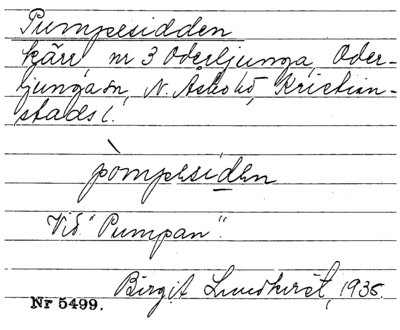 Pumpesidden
kärr nr 3 Oderljunga, Oder-
ljunga sn, N. Åsbo hd, Kristian-
stads l.
pòmpesiden
Vid "Pumpan".
Birgit Lundkvist, 1935.
Nr 5499.